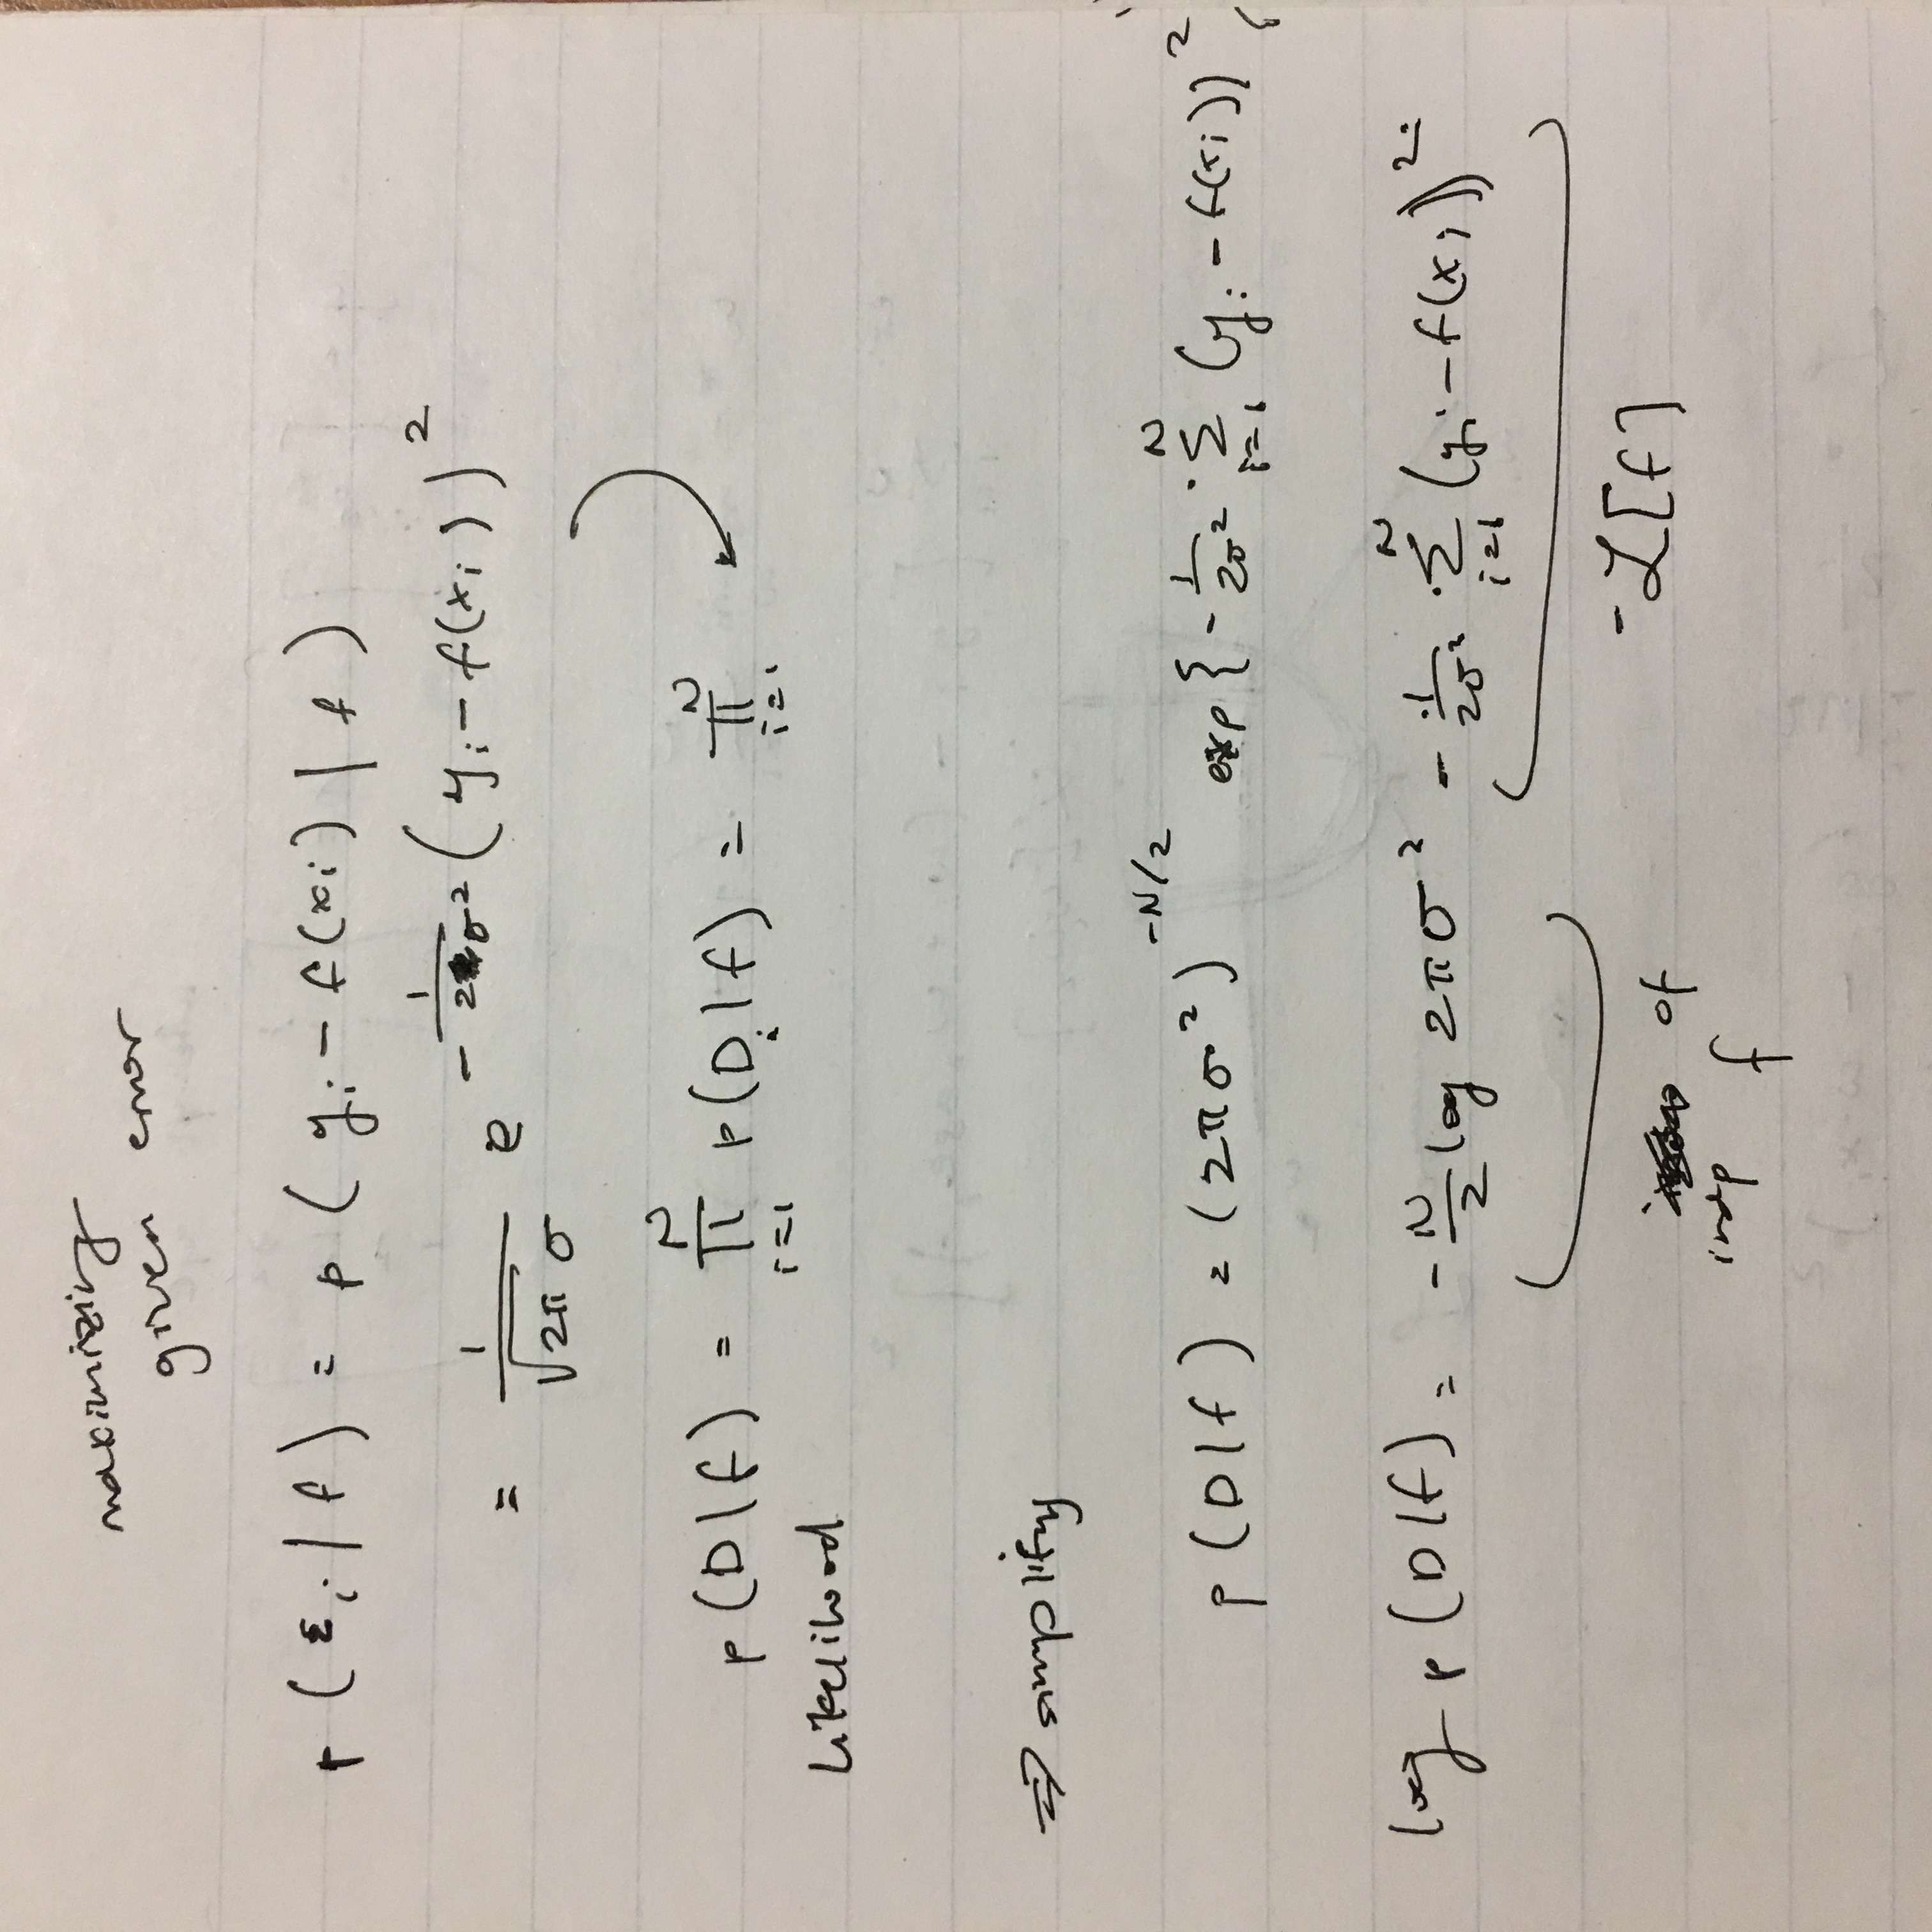 maximizing
given error
p(ε_i | f) = p(y_i - f(x_i) | f)
= 1/(√2π σ) e^{-1/(2σ²) (y_i - f(x_i))²}
p(D|f) = ∏_{i=1}^{N} p(D_i|f) = ∏_{i=1}^{N}
Likelihood
⇒ simplify
p(D|f) = (2πσ²)^{-N/2} exp{-1/(2σ²) · ∑_{i=1}^{N} (y_i - f(x_i))²}
log p(D|f) = -N/2 log 2πσ² - 1/(2σ²) · ∑_{i=1}^{N} (y_i - f(x_i))²
indp of
f
-ℒ[f]